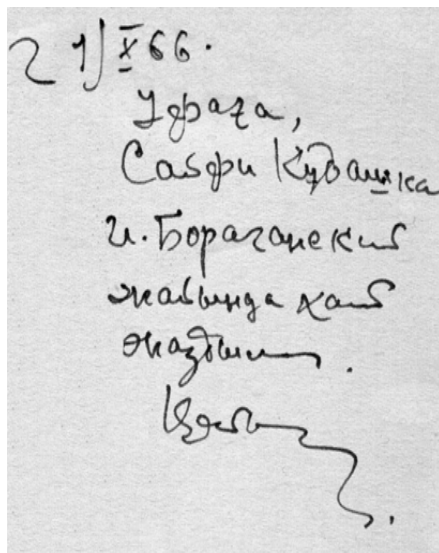 21/X 66.
Уфаға,
Сәйфи Кудашка
И. Бораганский
жайында хат
яҙҙым.